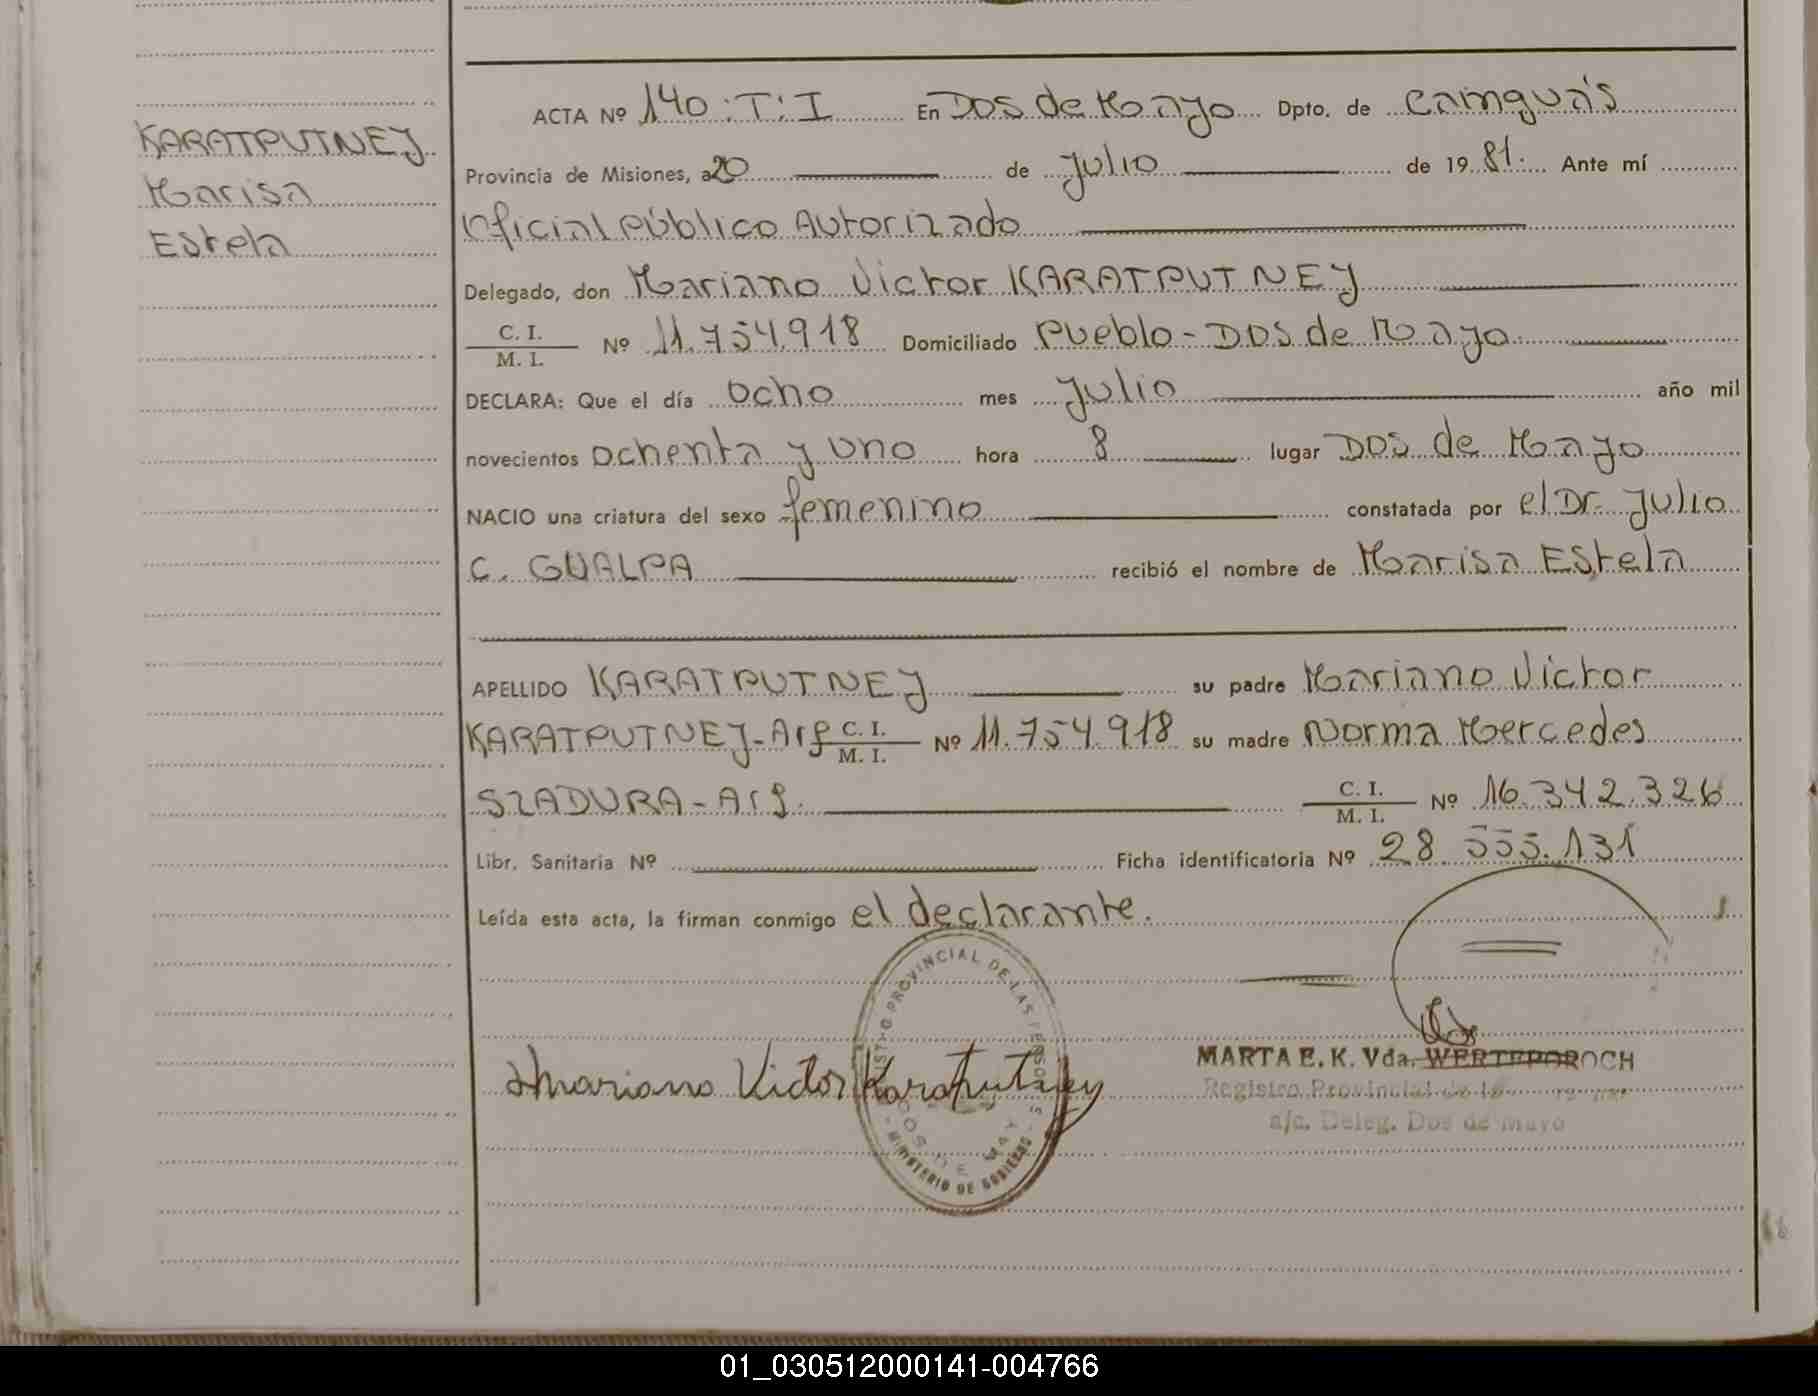 KARATPUTNEJ
Marisa
Estela
ACTA Nº 140:T:I En Dos de Mayo Dpto. de Cainguás
Provincia de Misiones, a 20 de Julio de 19 81. Ante mí
Oficial Público Autorizado
Delegado, don Mariano Victor KARATPUTNEJ
C. I.
M. I. Nº 11.754.918 Domiciliado Pueblo - Dos de Mayo
DECLARA: Que el día ocho mes Julio año mil
novecientos ochenta y uno hora 8 lugar Dos de Mayo
NACIO una criatura del sexo femenino constatada por el Dr. Julio
C. GUALPA recibió el nombre de Marisa Estela
APELLIDO KARATPUTNEJ su padre Mariano Víctor
KARATPUTNEJ-Arg C. I.
M. I. Nº 11.754.918 su madre Norma Mercedes
SZADURA-Arg. C. I.
M. I. Nº 16.342.326
Libr. Sanitaria Nº Ficha identificatoria Nº 28.555.131
Leída esta acta, la firman conmigo el declarante.
PROVINCIAL DE LAS PERSONAS
DOS DE MAYO
MINISTERIO DE GOBIERNO
Mariano Victor Karatputney
MARTA E. K. Vda. WERTEPOROCH
Registro Provincial de las
a/c. Deleg. Dos de Mayo
01_030512000141-004766